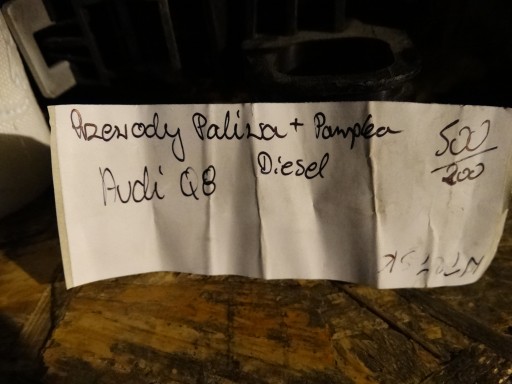 Przewody Paliwa + Pompka
Audi Q8 Diesel
500
200